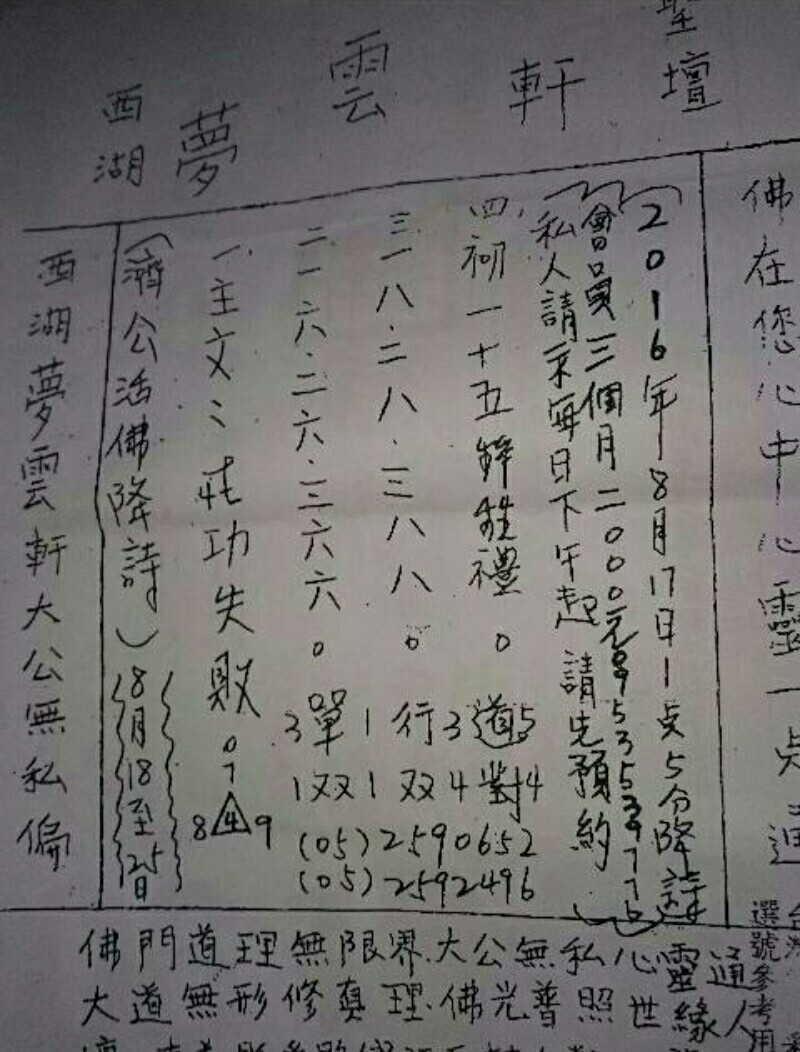 聖壇
西湖 夢雲軒
佛在您心中心靈一点通
(2016年8月17日1点5分降詩)
(會員三個月二000元0953539776)
(私人請求每日下午起請先預約)
四、初一十五鮮牲禮。道
三一八.二八.三八八。行
二一六.二六.三六六。單
一、主文:壯功失敗。
3單1行3道5
1双1双4對4
(05)2590652
(05)2592496
7
8 4 9
(濟公活佛降詩)
8月18至25日
西湖夢雲軒大公無私偏
佛門道理無限界.大公無私心靈通
大道無形修真理.佛光普照世緣人
選號參考用